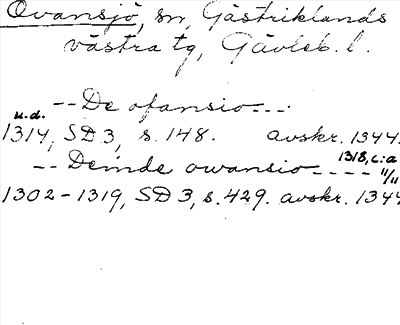 Ovansjö, sn, Gästriklands
västra tg, Gävleb. l.
-- De ofansio ---.
u.d.
1314, SD 3, s. 148. avskr. 1344.
1318, c:a 11/11
-- Deinde owansio ----
1302-1319, SD 3, s. 429. avskr. 1344